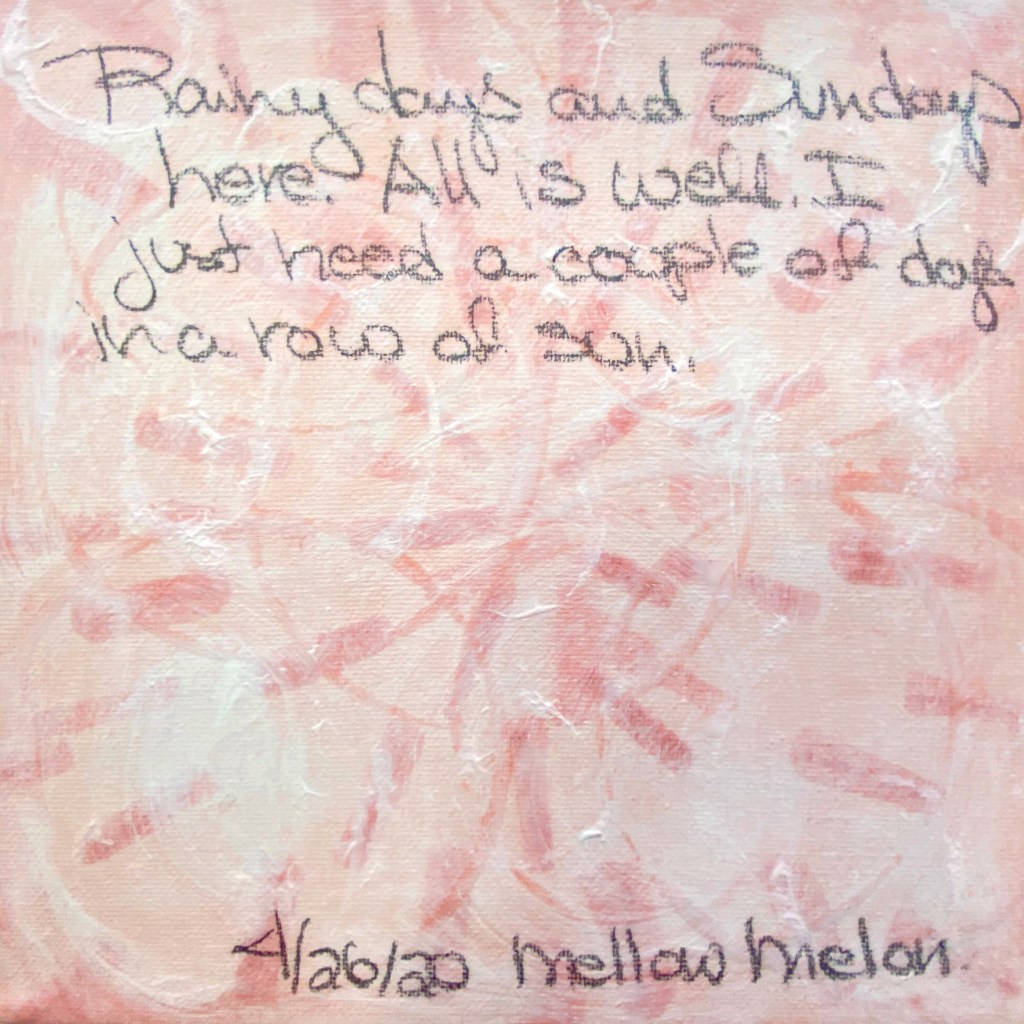 Rainy days and Sundays
here. All is well. I
just need a couple of days
in a row of sun.
4/26/20 mellow melon.